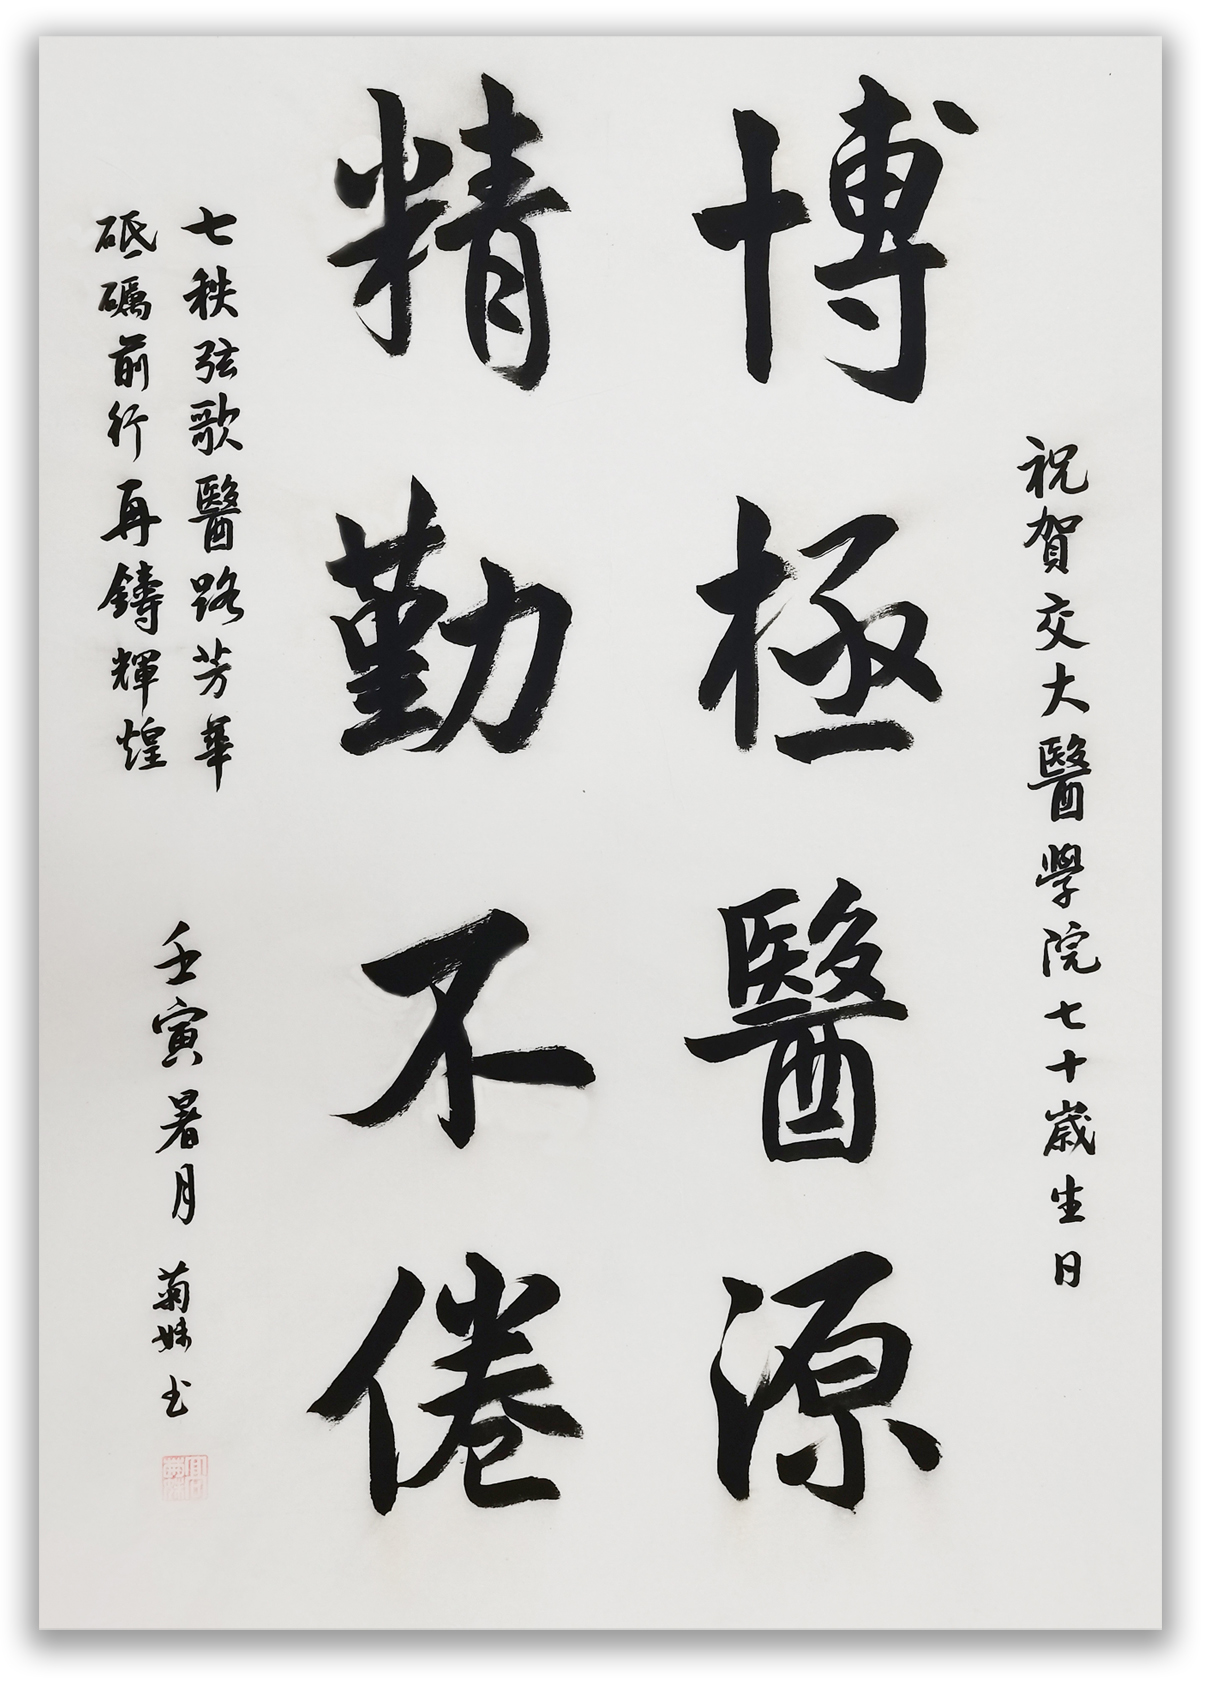 祝賀交大醫學院七十歲生日
博極醫源
精勤不倦
七秩弦歌醫路芳華
砥礪前行再鑄輝煌
壬寅暑月 菊妹书